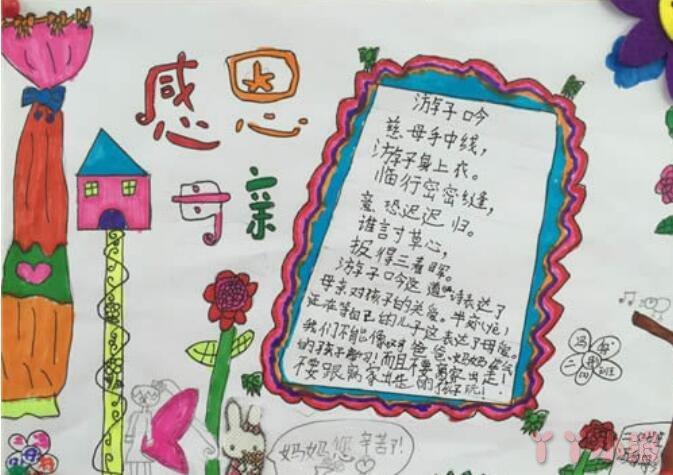 感恩
母亲
游子吟
慈母手中线，
游子身上衣。
临行密密缝，
意恐迟迟归。
谁言寸草心，
报得三春晖。
游子吟这道诗表达了
母亲对孩子的关爱。半夜
还在等自己的儿子这表达了母爱。
我们不能像 爸爸、妈妈
的孩子学习！而且不要离家出走！
不要跟离家出走的孩子玩！
妈妈您辛苦了！